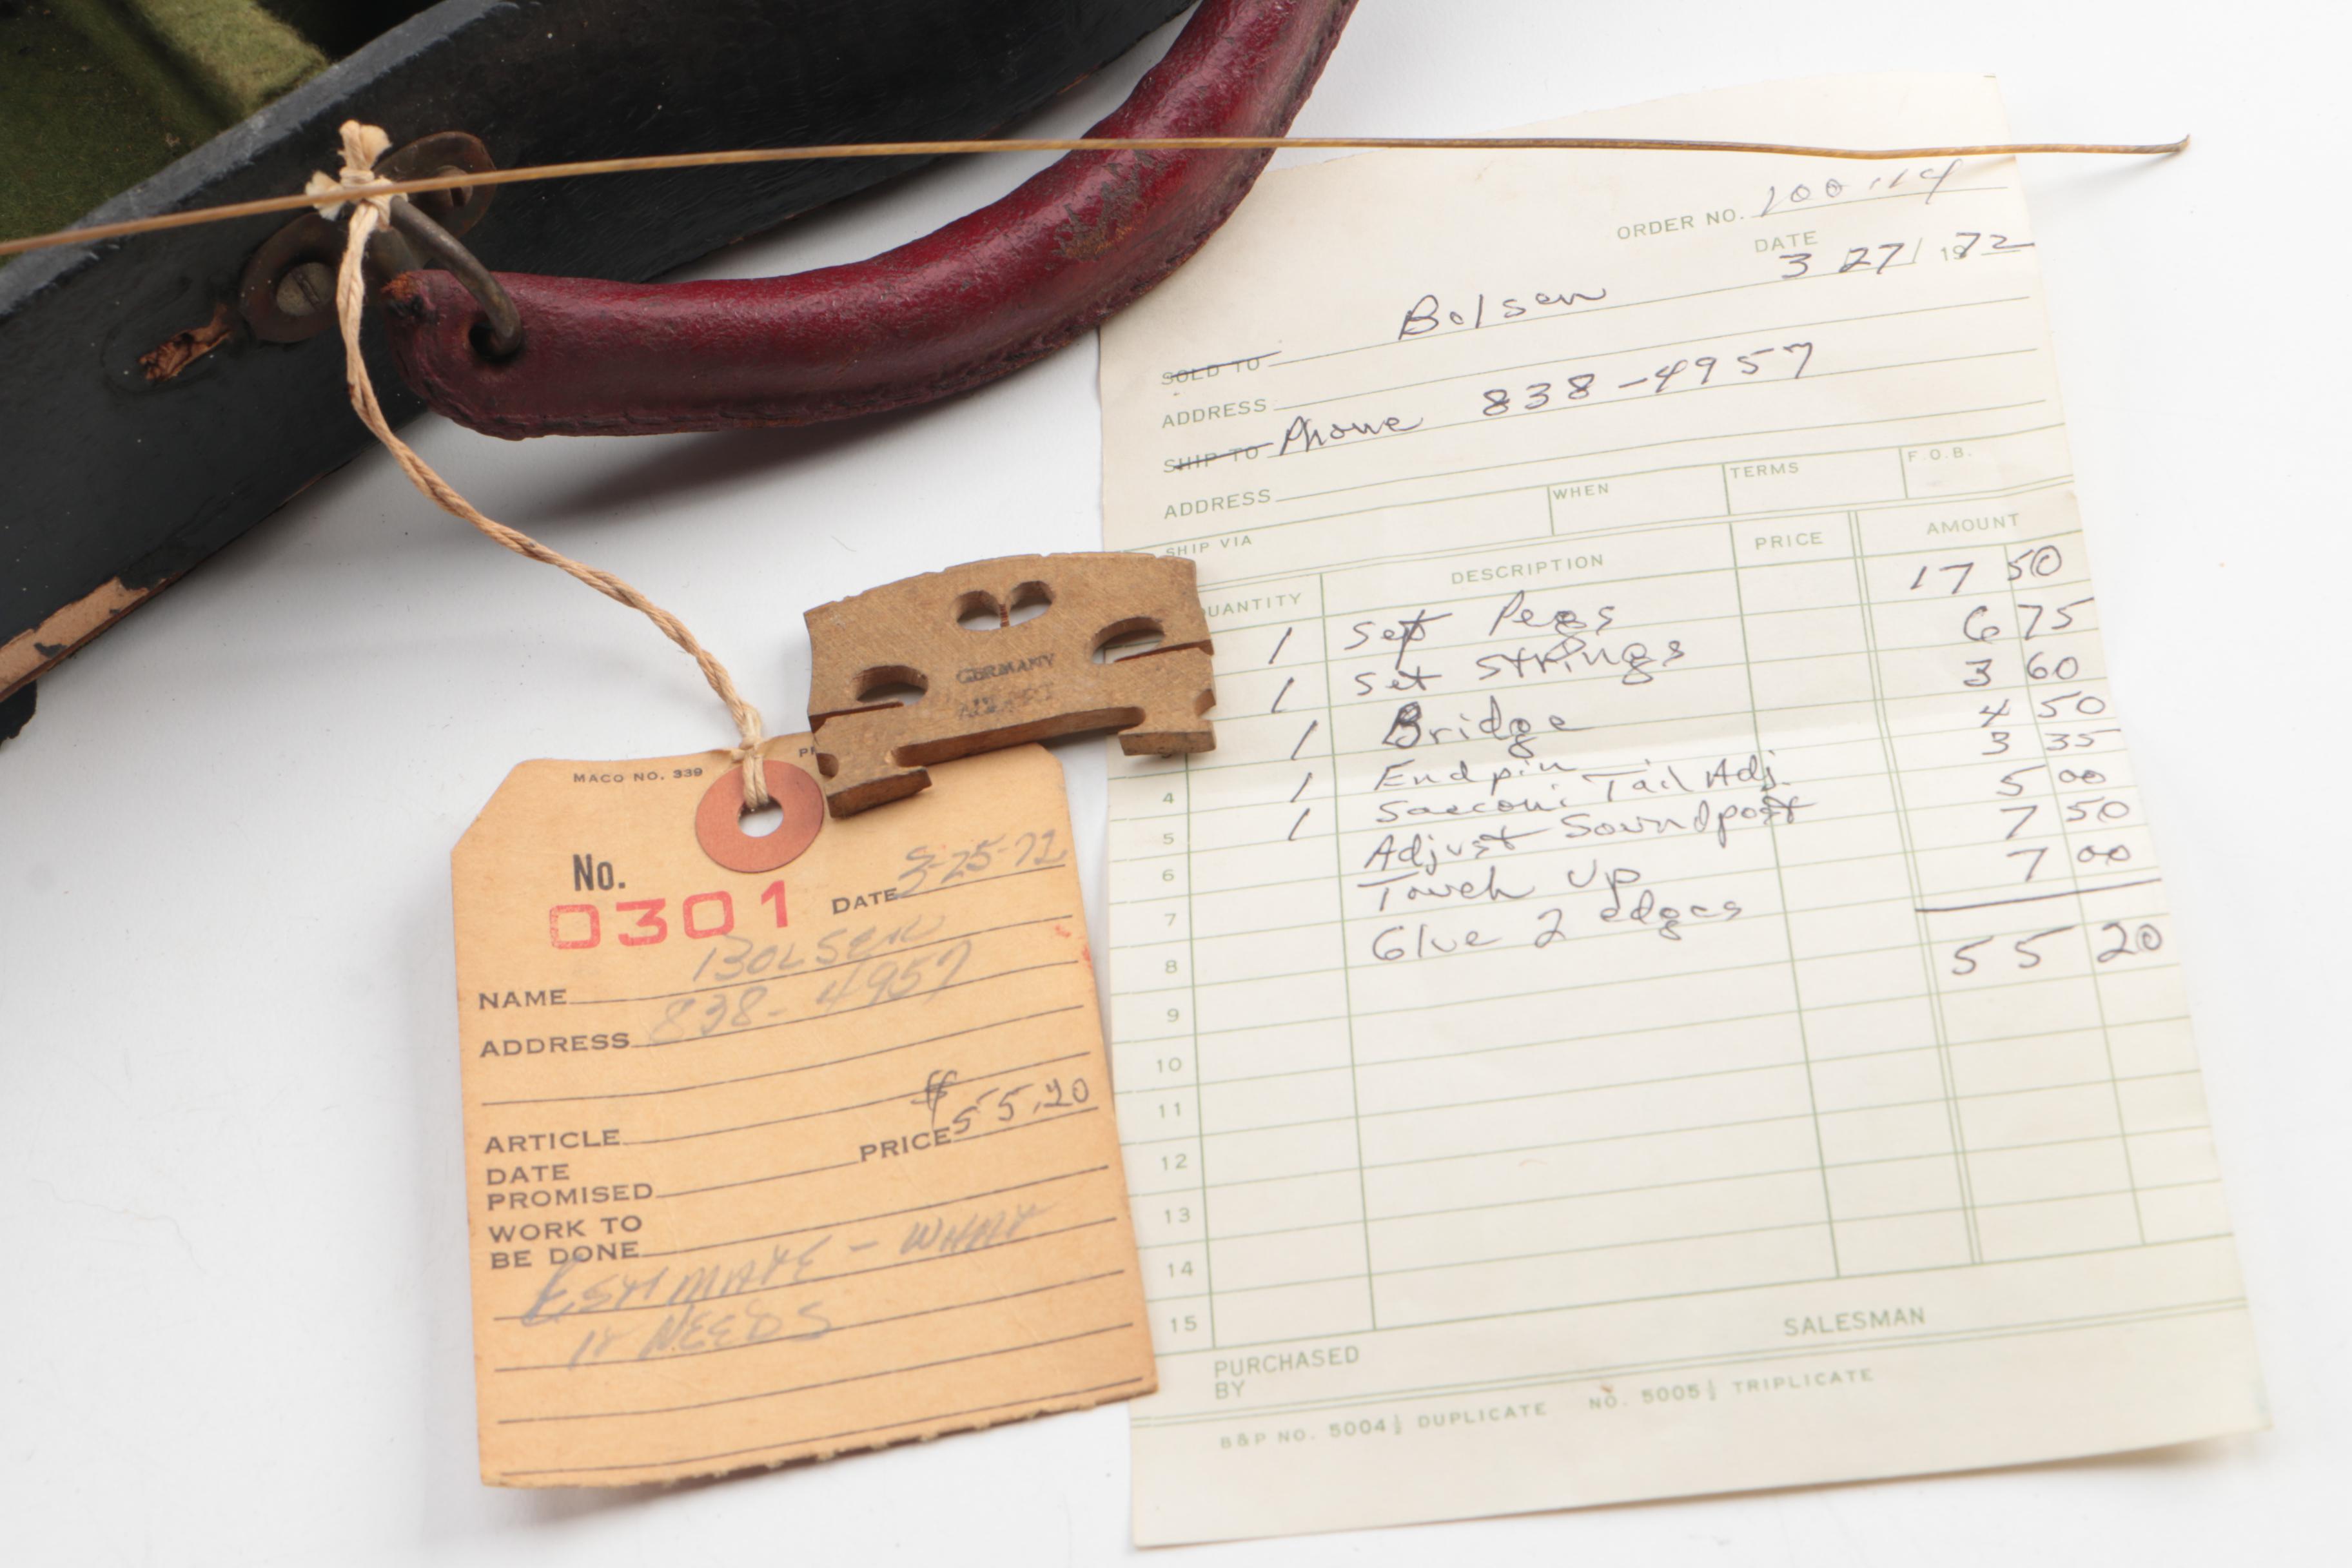 ORDER NO.
DATE
3 27/ 1972
SOLD TO Bolsen
ADDRESS
SHIP TO Phone 838-4957
ADDRESS
SHIP VIA WHEN TERMS F.O.B.
QUANTITY DESCRIPTION PRICE AMOUNT
1 Set Pegs 17 50
1 Set Strings 6 75
1 Bridge 3 60
4 1 Endpin 4 50
5 1 Sacconi Tail Adj. 3 35
6 Adjust Soundpost 5 00
7 Touch up 7 50
8 Glue 2 edges 7 00
9 55 20
10
11
12
13
14
15
PURCHASED BY SALESMAN
B&P NO. 5004½ DUPLICATE NO. 5005½ TRIPLICATE
GERMANY
MACO NO. 339
No.
0301
DATE 3-25-72
NAME BOLSEN
ADDRESS 838-4957
ARTICLE
DATE
PROMISED PRICE $55.20
WORK TO
BE DONE
ESTIMATE - WHAT
IT NEEDS